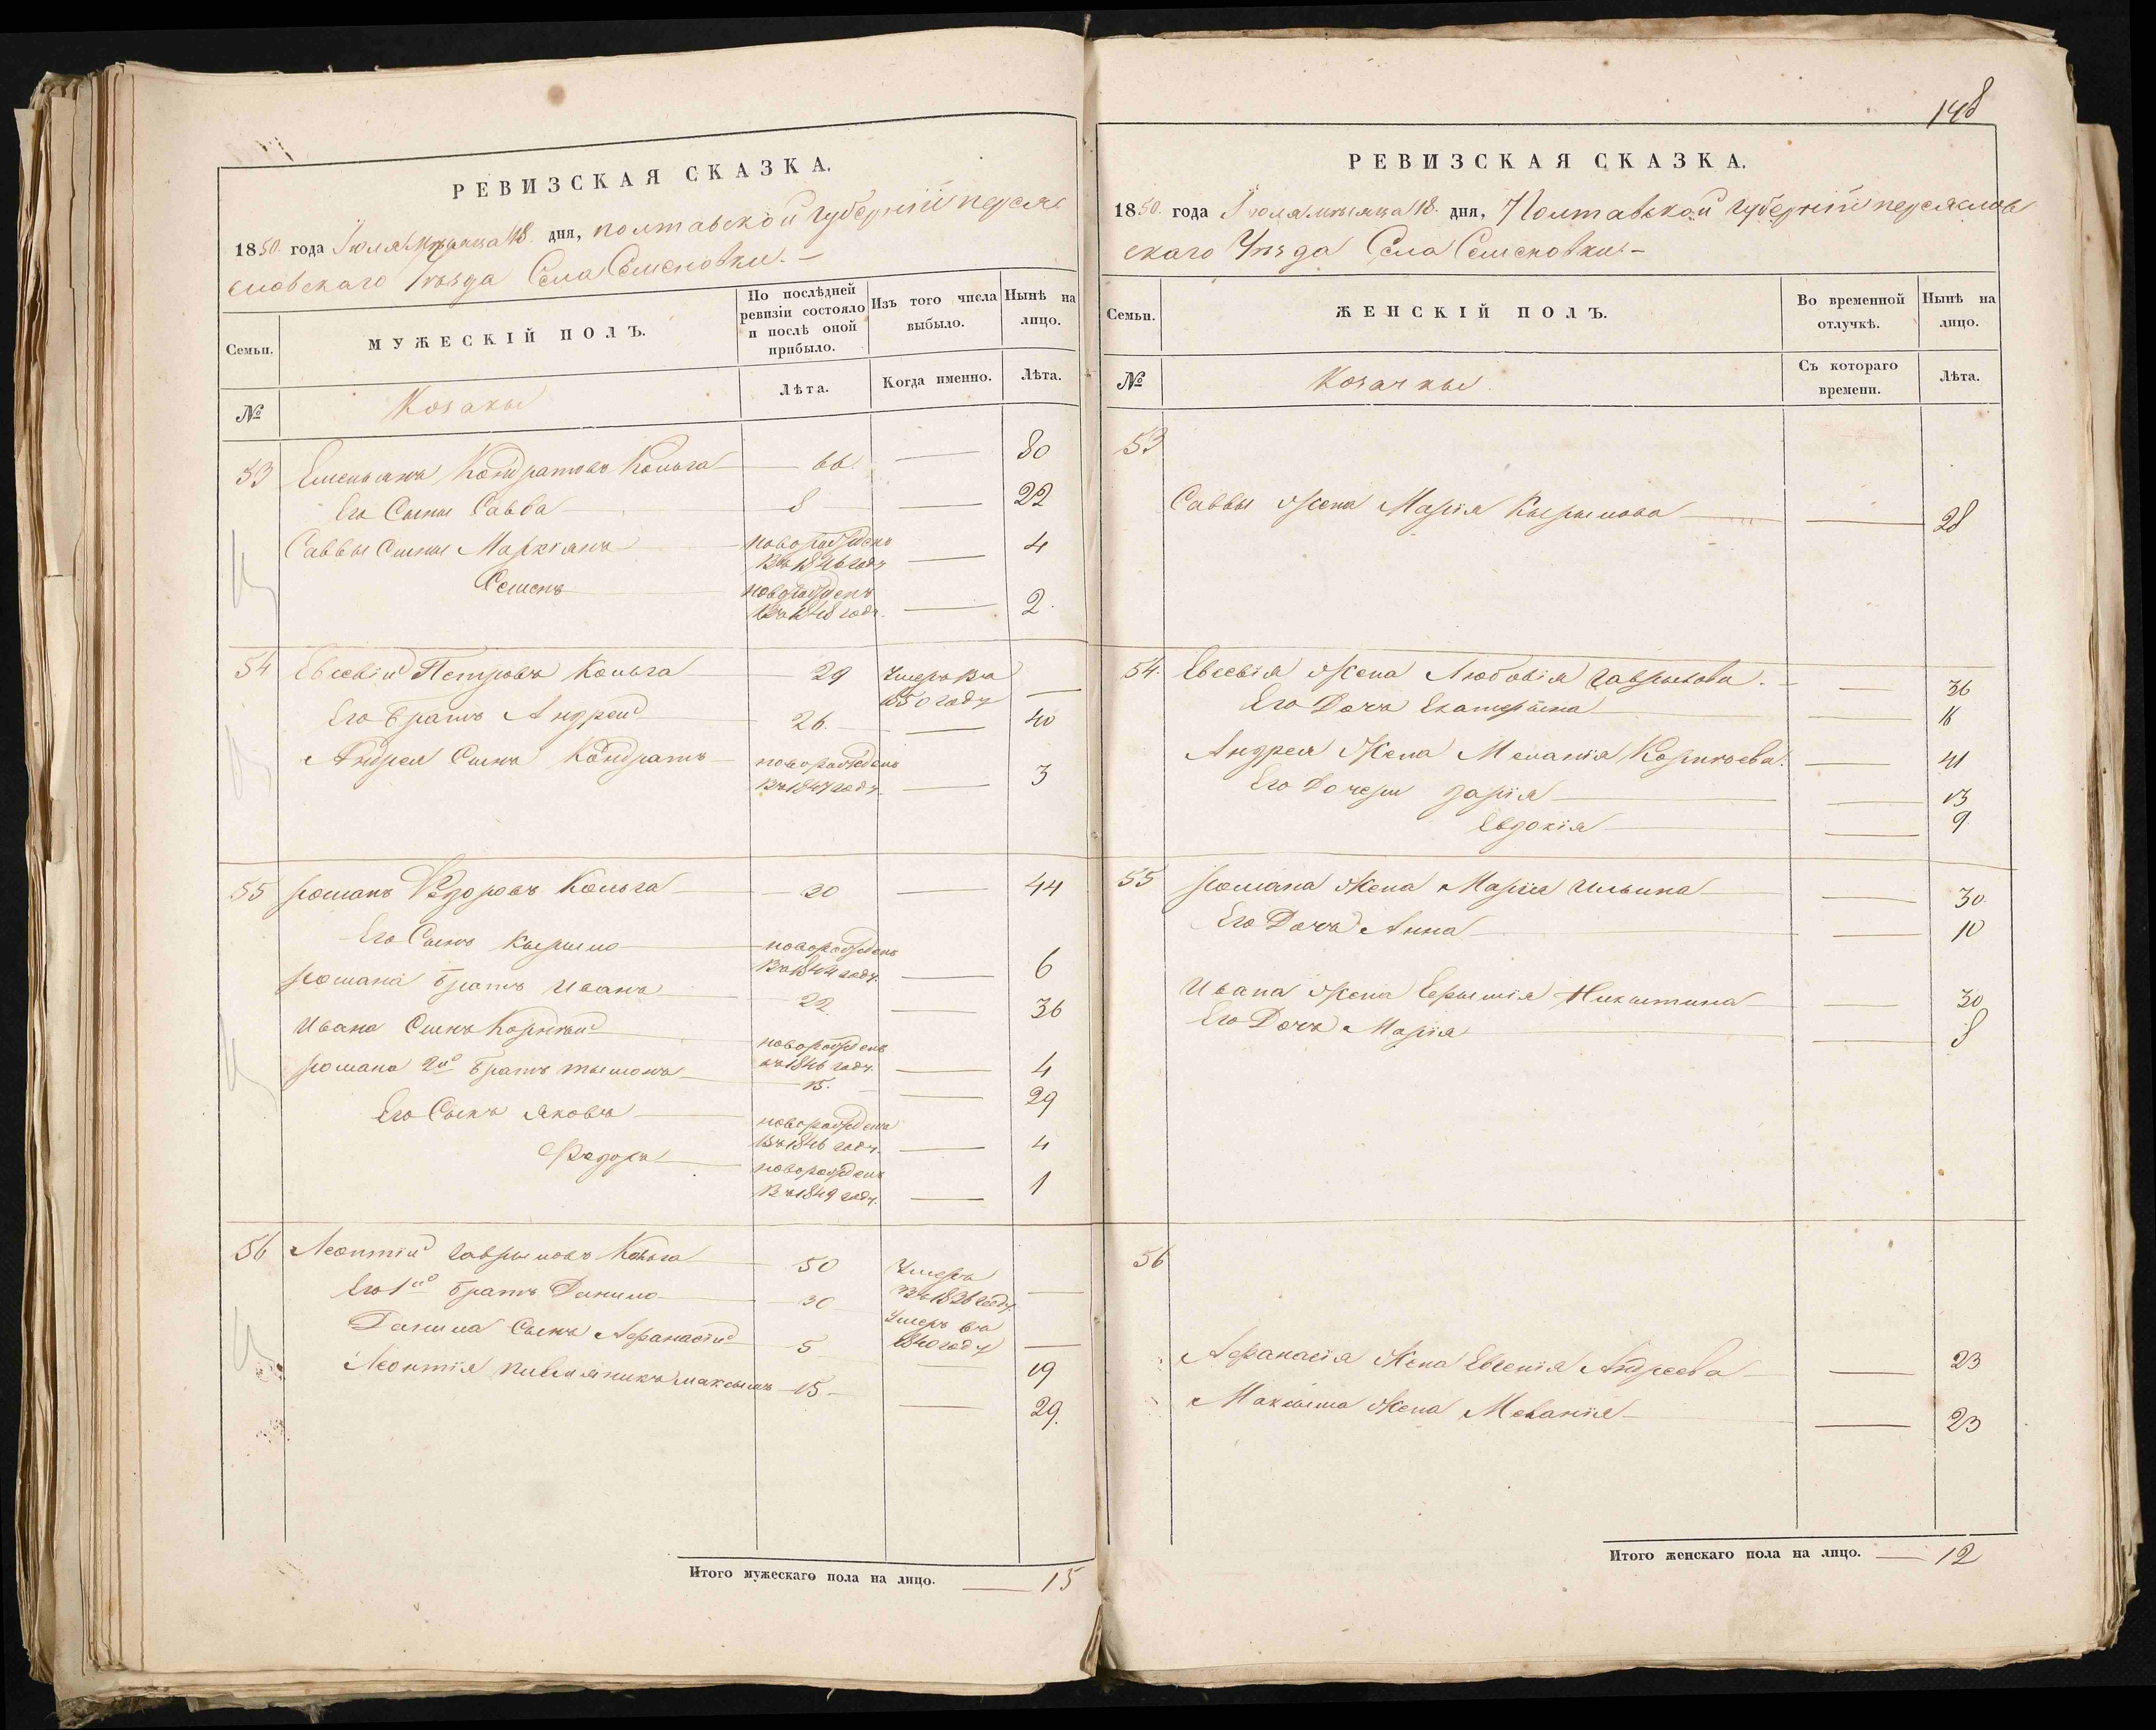 РЕВИЗСКАЯ СКАЗКА.
1850. года Іюля Мѣсяца 18. дня, полтавской губерніи переяс
ловскаго Уѣзда Села Семеновки. –
Семьи.
МУЖЕСКІЙ ПОЛЪ.
По послѣдней ревизіи состояло и послѣ оной прибыло.
Изъ того числа выбыло.
Нынѣ на лицо.
№
Козакы
Лѣта.
Когда именно.
Лѣта.
53 Емельянъ Кондратовъ Колога — 66. — 80
Его Сынъ Савва — 8 — 22
Саввы Сыны Маркіянъ — новорожденъ
Въ 1846 году — 4
Семенъ — новорожденъ
Въ 1848 году. — 2.
54 Евсевій Петровъ Кольга — 29 Умеръ Въ
1850 году —
Его братъ Андрей 26. — 40
Андрея Сынъ Кондратъ — новорожденъ
Въ 1847 году. — 3
55 романъ Федоровъ Кольга — 30 — 44
Его Сынъ Кырыло — новорожденъ
Въ 1844 году. — 6
романа братъ Иванъ — 22. — 36
Ивана Сынъ Корнѣй — новорожденъ
въ 1846 году. — 4
романа 2й братъ тымошъ — 15. — 29
Его Сынъ яковъ — новорожденъ
Въ 1846 году. — 4
Федоръ — новорожденъ
Въ 1849 году. — 1
56 Леонтій гаврыловъ Кольга — 50 Умеръ
Въ 1836 году. —
Его 1й братъ Данило — 30 Умеръ въ
1840 году —
Данила Сынъ Афанасій — 5 — 19
Леонтія племяникъ максымъ — 15 — 29.
Итого мужескаго пола на лицо. — 15
148
РЕВИЗСКАЯ СКАЗКА.
1850. года Іюля мѣсяца 18. дня, Полтавской губерніи переяслов
скаго Уѣзда Села Семеновки. –
Семьи.
ЖЕНСКІЙ ПОЛЪ.
Во временной отлучкѣ.
Нынѣ на лицо.
№
Козачкы
Съ котораго времени.
Лѣта.
53
Саввы Жена Марія Кырылова — — 28
54. Евсевія Жена Любовія гаврылова. — — 36
Его Дочь Екатерина — — 16
Андрея Жена Меланія Корнѣева. — 41
Его Дочери дарія — — 13
Евдокія — — 9
55 романа Жена Марія Ильина — — 30.
Его Дочь Анна — — 10
Ивана Жена Ефымія Никытина — — 30
Его Дочь Марія — 8
56
Афанасія Жена Евгенія Андреева — — 23
Максыма Жена Меланія — — 23
Итого женскаго пола на лицо. — 12